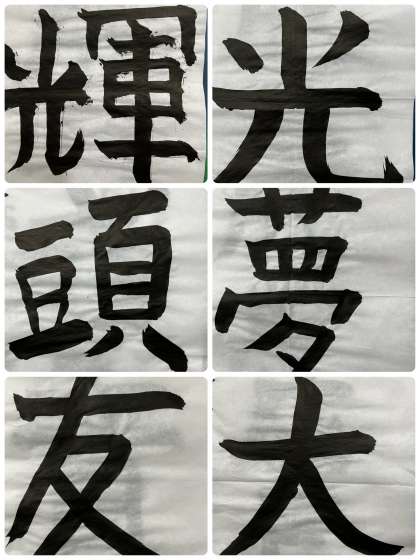 輝光
頭夢
友大